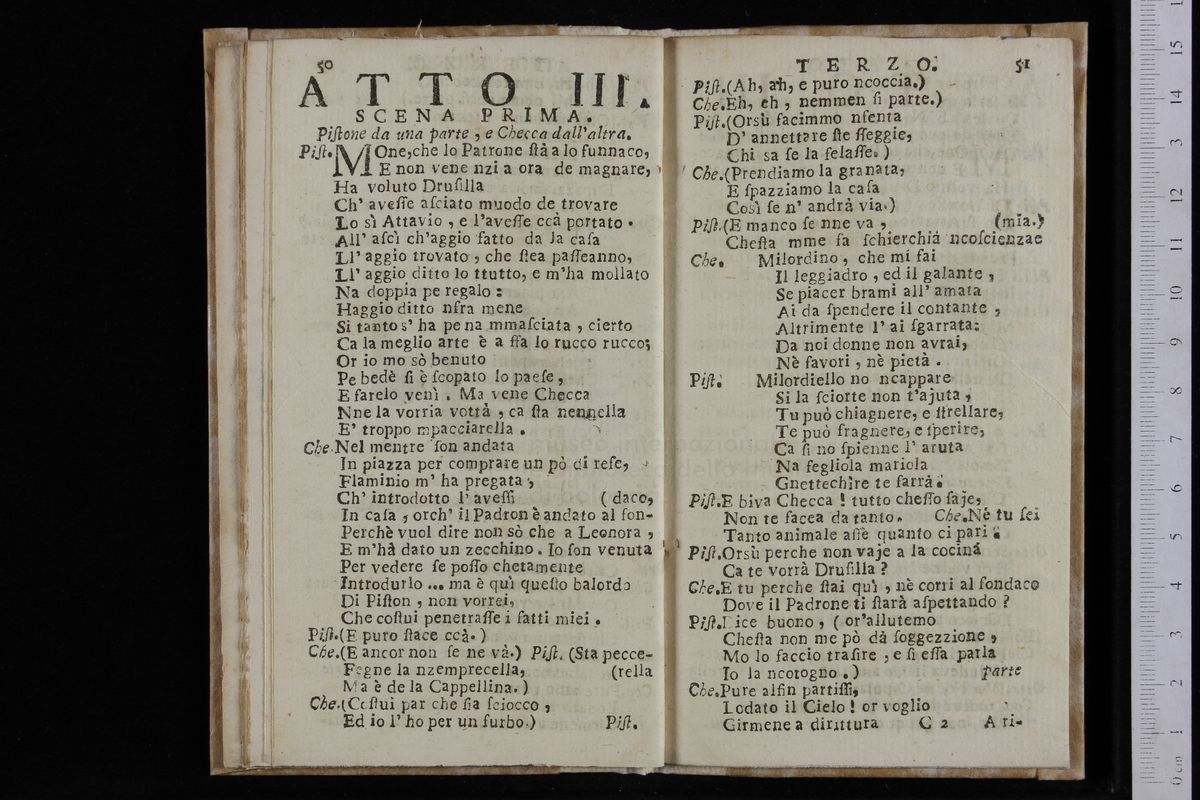 50
ATTO III.
SCENA PRIMA.
Piſtone da una parte, e Checca dall'altra.
Piſt. MOne,che lo Patrone ſtà a lo funnaco,
E non vene nzi a ora de magnare,
Ha voluto Druſilla
Ch' aveſſe aſciato muodo de trovare
Lo sì Attavio, e l'aveſſe ccà portato.
All' aſcì ch'aggio fatto da la caſa
Ll' aggio trovato, che ſtea paſſeanno,
Ll' aggio ditto lo ttutto, e m'ha mollato
Na doppia pe regalo:
Haggio ditto nfra mene
Si tanto s' ha pe na mmaſciata, cierto
Ca la meglio arte è a ffa lo rucco rucco;
Or io mo sò benuto
Pe bedè ſi è ſcopato lo paeſe,
E farelo venì. Ma vene Checca
Nne la vorria vottà, ca ſta nennella
E' troppo mpacciarella.
Che. Nel mentre ſon andata
In piazza per comprare un pò di reſe,
Flaminio m' ha pregata,
Ch' introdotto l' aveſſi (daco,
In caſa, orch' il Padron è andato al fon-
Perchè vuol dire non sò che a Leonora,
E m'hà dato un zecchino. Io ſon venuta
Per vedere ſe poſſo chetamente
Introdurlo ... ma è quì queſto balordo
Di Piſton, non vorrei,
Che coſtui penetraſſe i fatti miei.
Piſt.(E puro ſtace ccà.)
Che.(E ancor non ſe ne và.) Piſt. (Sta pecce-
Fegne la nzemprecella, (rella
Ma è de la Cappellina.)
Che.(Coſtui par che ſia ſciocco,
Ed io l' ho per un furbo.) Piſt.
TERZO. 51
Piſt.(Ah, ah, e puro ncoccia.)
Che.Eh, eh, nemmen ſi parte.)
Piſt.(Orsù facimmo nfenta
D' annettare ſte ſſeggie,
Chi sa ſe la ſelaſſe.)
Che.(Prendiamo la granata,
E ſpazziamo la caſa
Così ſe n' andrà via.)
Piſt.(E manco ſe nne va, (mia.)
Cheſta mme fa ſchierchià ncoſcienzae
Che. Milordino, che mi fai
Il leggiadro, ed il galante,
Se piacer brami all' amata
Ai da ſpendere il contante,
Altrimente l' ai ſgarrata:
Da noi donne non avrai,
Nè favori, nè pietà.
Piſt. Milordiello no ncappare
Si la ſciorte non t'ajuta,
Tu può chiagnere, e ſtrellare,
Te può fragnere, e ſperire,
Ca ſi no ſpienne l' aruta
Na fegliola mariola
Gnettechire te farrà.
Piſt.E biva Checca! tutto cheſſo ſaje,
Non te facea da tanto. Che.Nè tu ſei
Tanto animale aſſè quanto ci pari.
Piſt.Orsù perche non vaje a la cocina
Ca te vorrà Druſilla?
Che.E tu perche ſtai quì, nè corri al fondaco
Dove il Padrone ti ſtarà aſpettando?
Piſt.Dice buono, (or'allutemo
Cheſta non me pò dà ſoggezzione,
Mo lo faccio traſire, e ſi eſſa parla
Io la ncotogno.) parte
Che.Pure alfin partiſſi,
Lodato il Cielo! or voglio
Girmene a dirittura C 2 A ri-